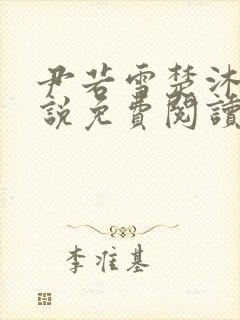 尹若雪楚沐
說免費閱讀
李准基